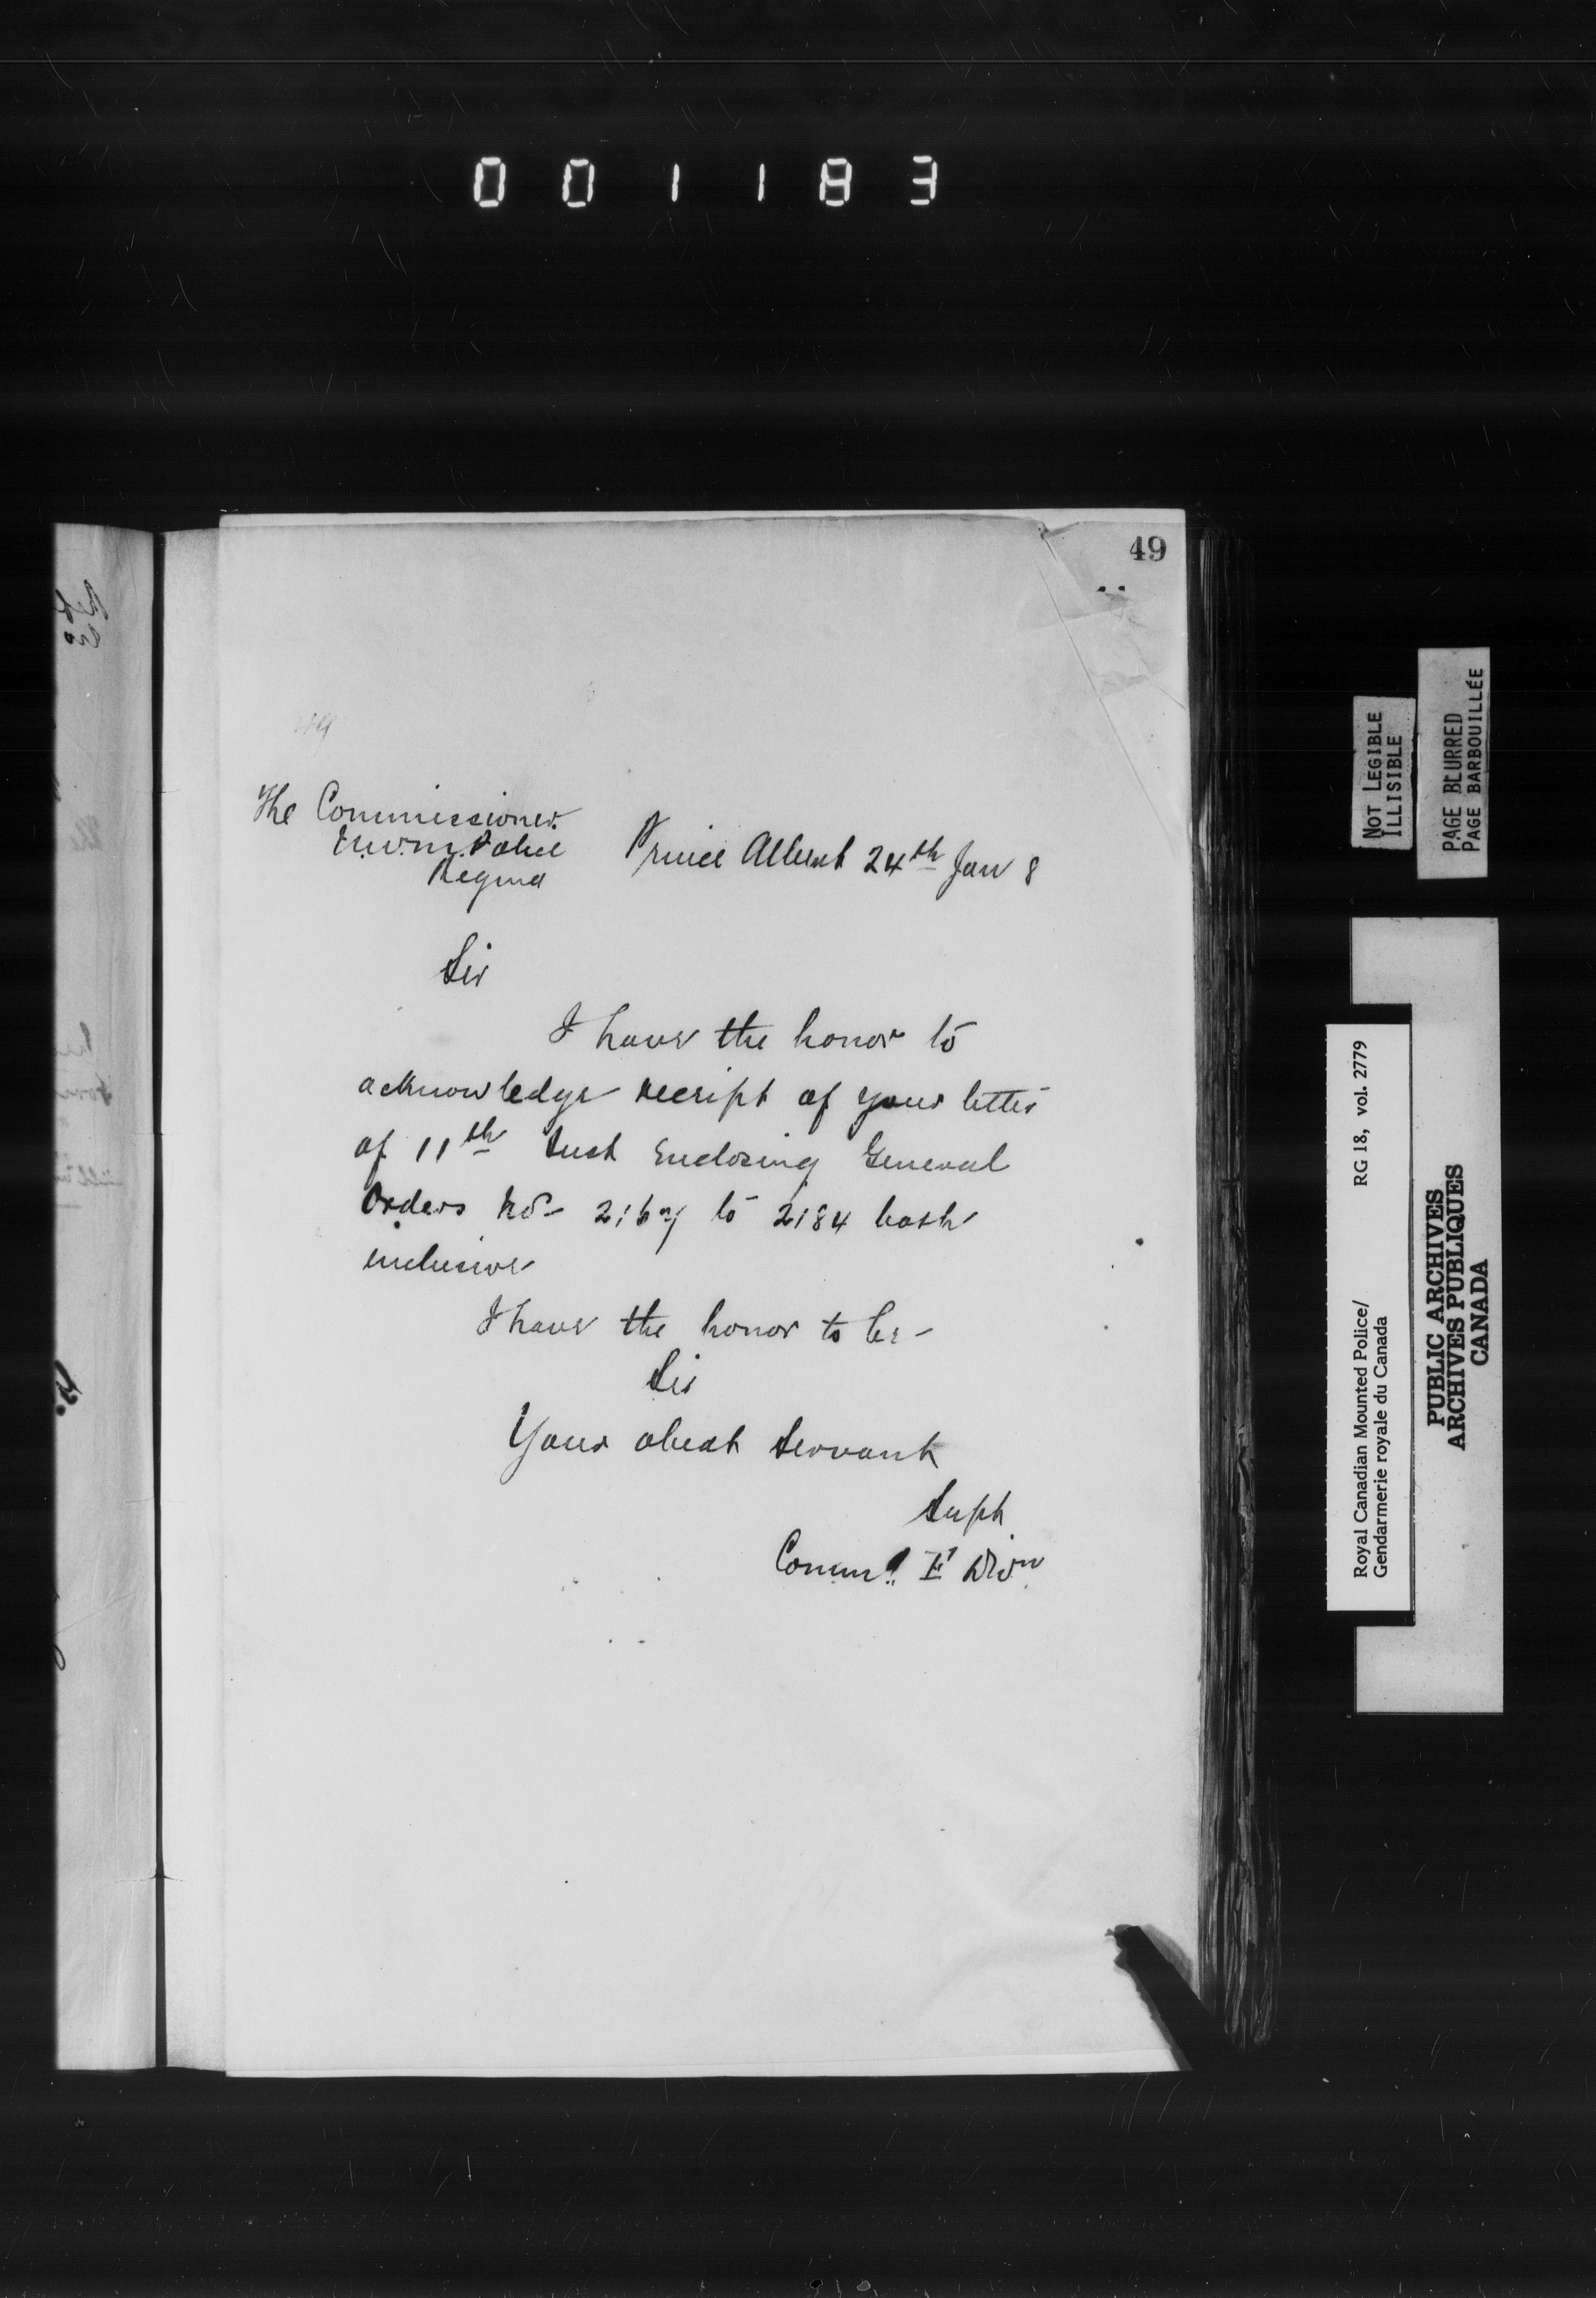 001183
49
49
The Commissioner
N.W.M. Police
Regina
Prince Albert 24th Jan 8
Sir
I have the honor to
acknowledge receipt of your letter
of 11th Inst Enclosing General
Orders No 2167 to 2184 both
inclusive
I have the honor to be
Sir
Your obedt Servant
Supt
Commd F Divn
NOT LEGIBLE
ILLISIBLE
PAGE BLURRED
PAGE BARBOUILLÉE
Royal Canadian Mounted Police/ RG 18, vol. 2779
Gendarmerie royale du Canada
PUBLIC ARCHIVES
ARCHIVES PUBLIQUES
CANADA